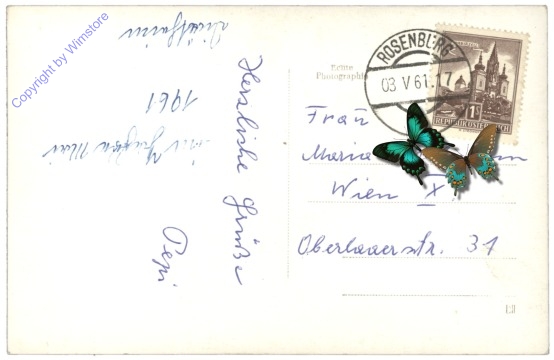 Copyright by Wimstore
1961
Herzliche Grüße
Pepi
Echte
Photographie
ROSENBURG
03 V 61.17
1S
REPUBLIK ÖSTERREICH
Frau
Maria
Wien X
Oberlaaerstr. 31